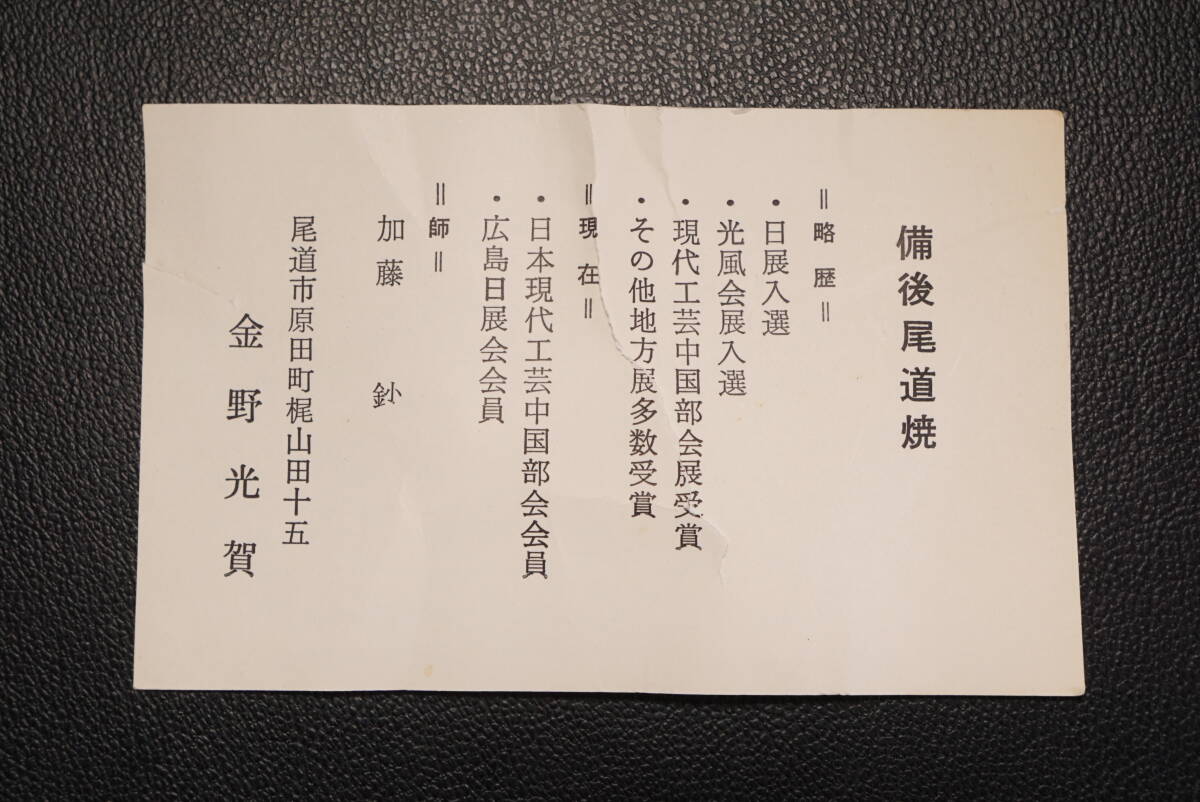 備後尾道焼
＝略歴＝
・日展入選
・光風会展入選
・現代工芸中国部会展受賞
・その他地方展多数受賞
＝現在＝
・日本現代工芸中国部会会員
・広島日展会会員
＝師＝
加藤 釥
尾道市原田町梶山田十五
金野光賀